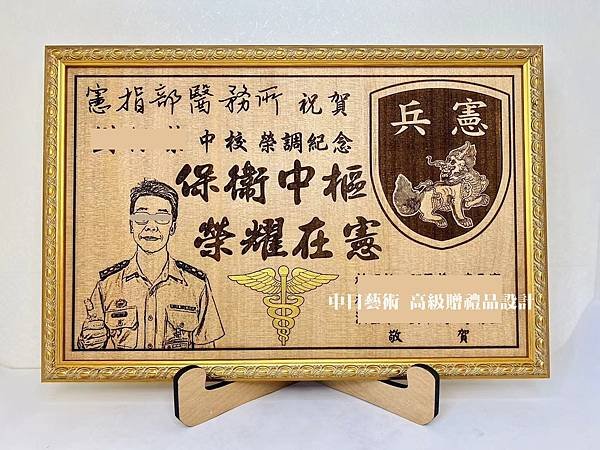 憲指部醫務所 祝賀
中校 榮調紀念
保衛中樞
榮耀在憲
兵憲
中日藝術 高級贈禮品設計
敬賀